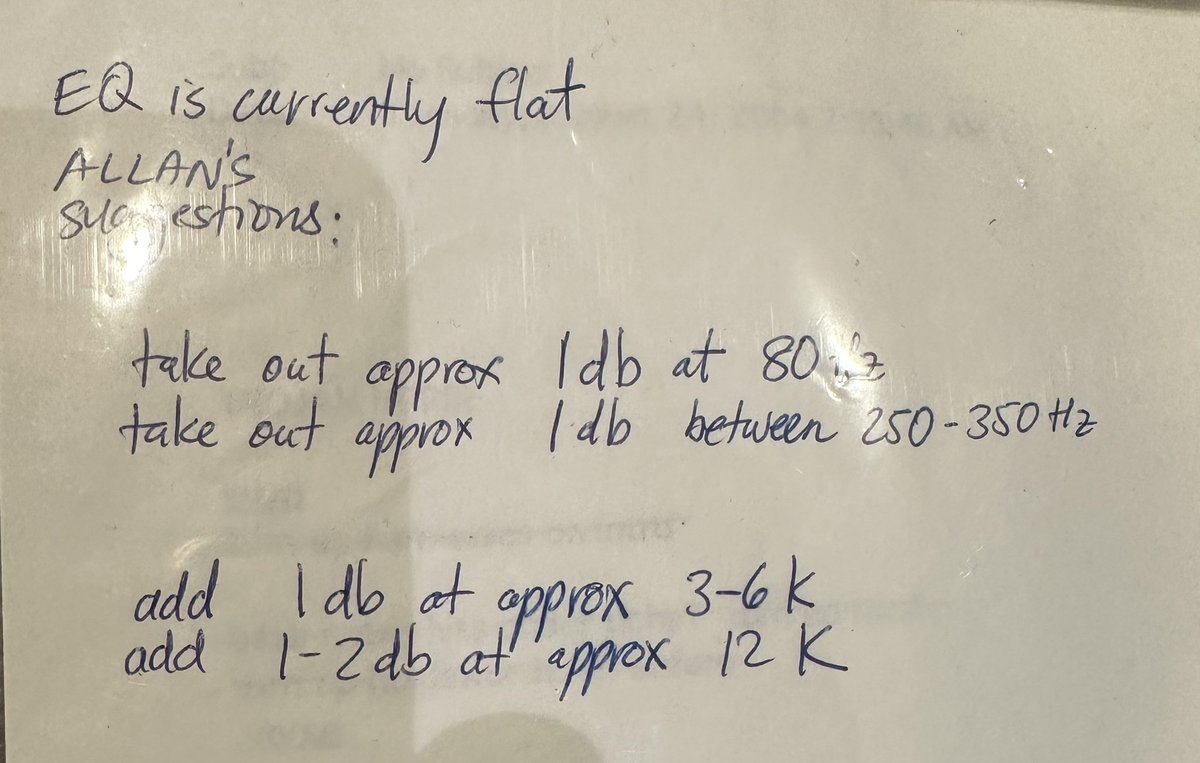 EQ is currently flat
ALLAN'S
suggestions:
take out approx 1db at 80 Hz
take out approx 1db between 250-350 Hz
add 1db at approx 3-6 K
add 1-2db at approx 12 K